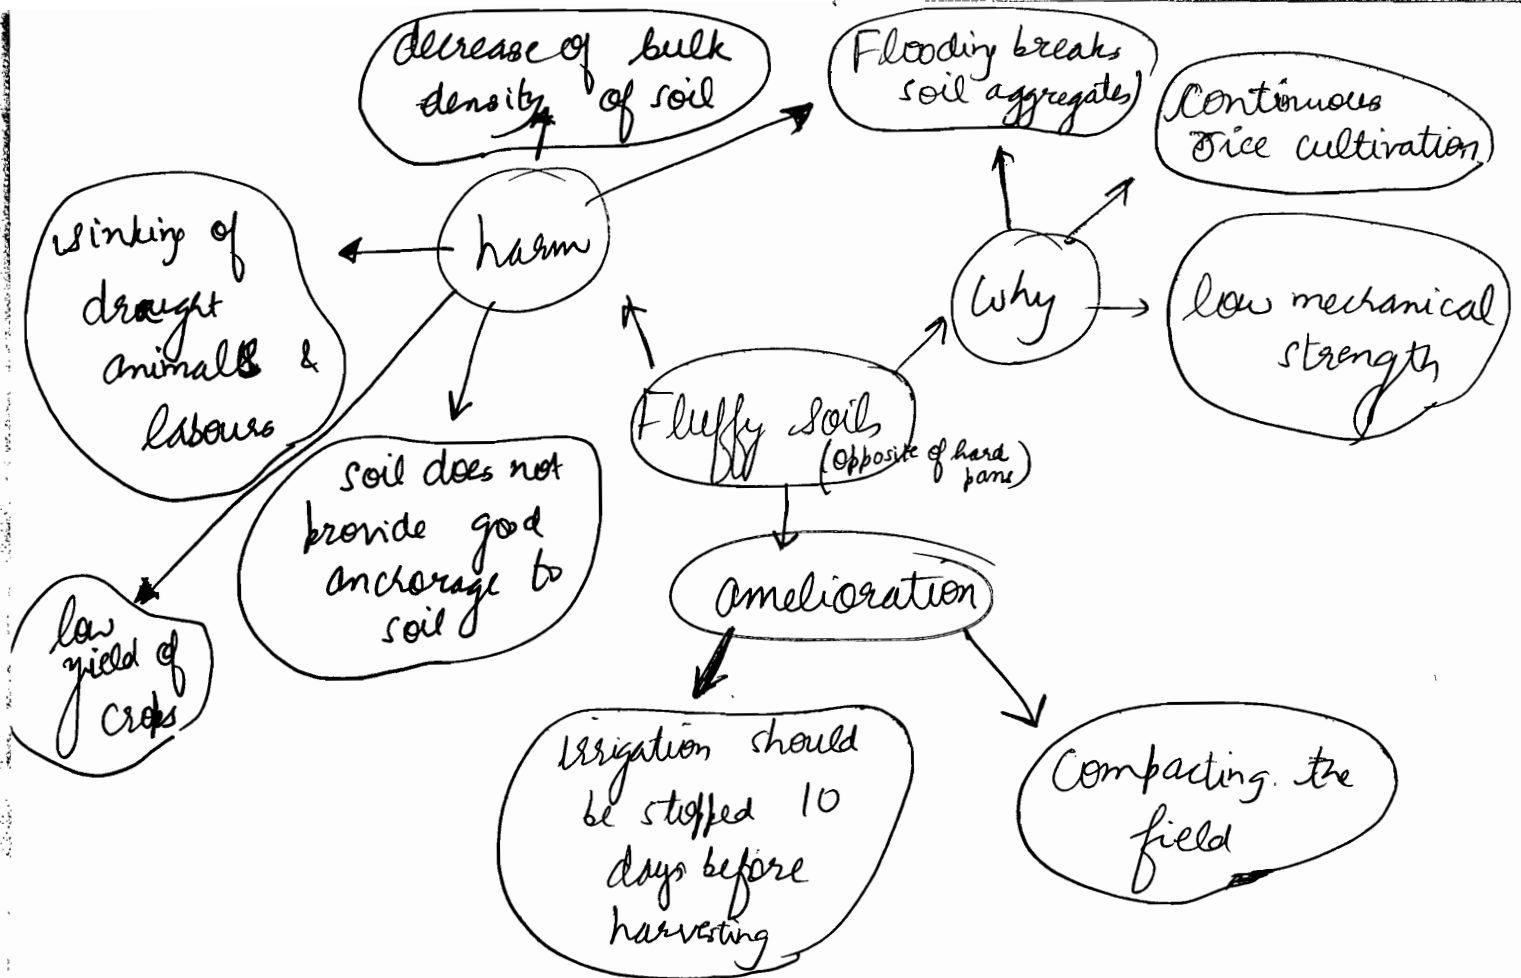 decrease of bulk
density of soil
Flooding breaks
soil aggregates
continuous
rice cultivation
sinking of
draught
animals &
labours
harm
Why
low mechanical
strength
Fluffy soils
(opposite of hard
pans)
soil does not
provide good
anchorage to
soil
amelioration
low
yield of
crops
irrigation should
be stopped 10
days before
harvesting
Compacting the
field